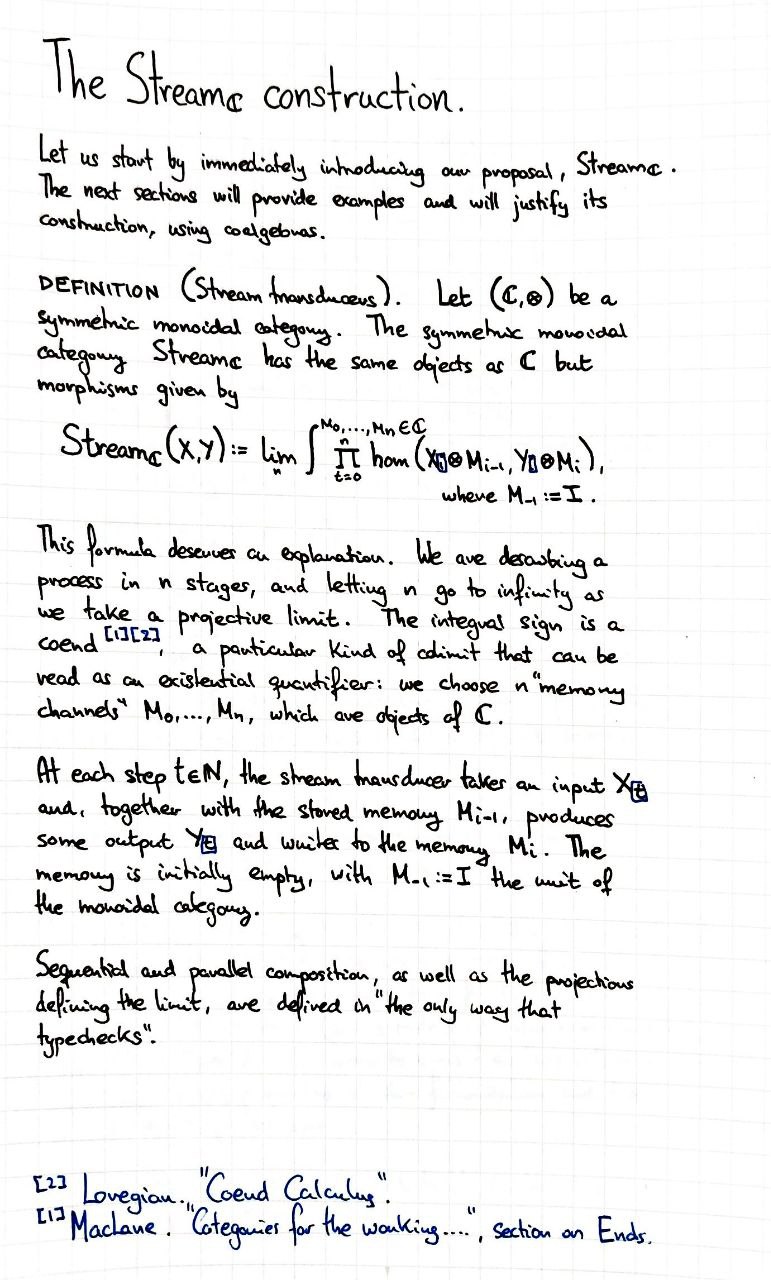 The Streamℂ construction.
Let us start by immediately introducing our proposal, Streamℂ.
The next sections will provide examples and will justify its
construction, using coalgebras.
DEFINITION (Stream transducers). Let (ℂ,⊗) be a
symmetric monoidal category. The symmetric monoidal
category Streamℂ has the same objects as ℂ but
morphisms given by
Streamℂ(X,Y) := lim_n ∫^{M₀,...,Mn∈ℂ} ∏_{t=0}^{n} hom(X▯⊗M_{i-1}, Y▯⊗M_i),
where M₋₁ := I.
This formula deserves an explanation. We are describing a
process in n stages, and letting n go to infinity as
we take a projective limit. The integral sign is a
coend [1][2], a particular kind of colimit that can be
read as an existential quantifier: we choose n "memory
channels" M₀,..., Mn, which are objects of ℂ.
At each step t∈ℕ, the stream transducer takes an input X_t
and, together with the stored memory M_{i-1}, produces
some output Y_t and writes to the memory M_i. The
memory is initially empty, with M₋₁ := I the unit of
the monoidal category.
Sequential and parallel composition, as well as the projections
defining the limit, are defined in "the only way that
typechecks".
[2] Loregian. "Coend Calculus".
[1] MacLane. "Categories for the working....", section on Ends.